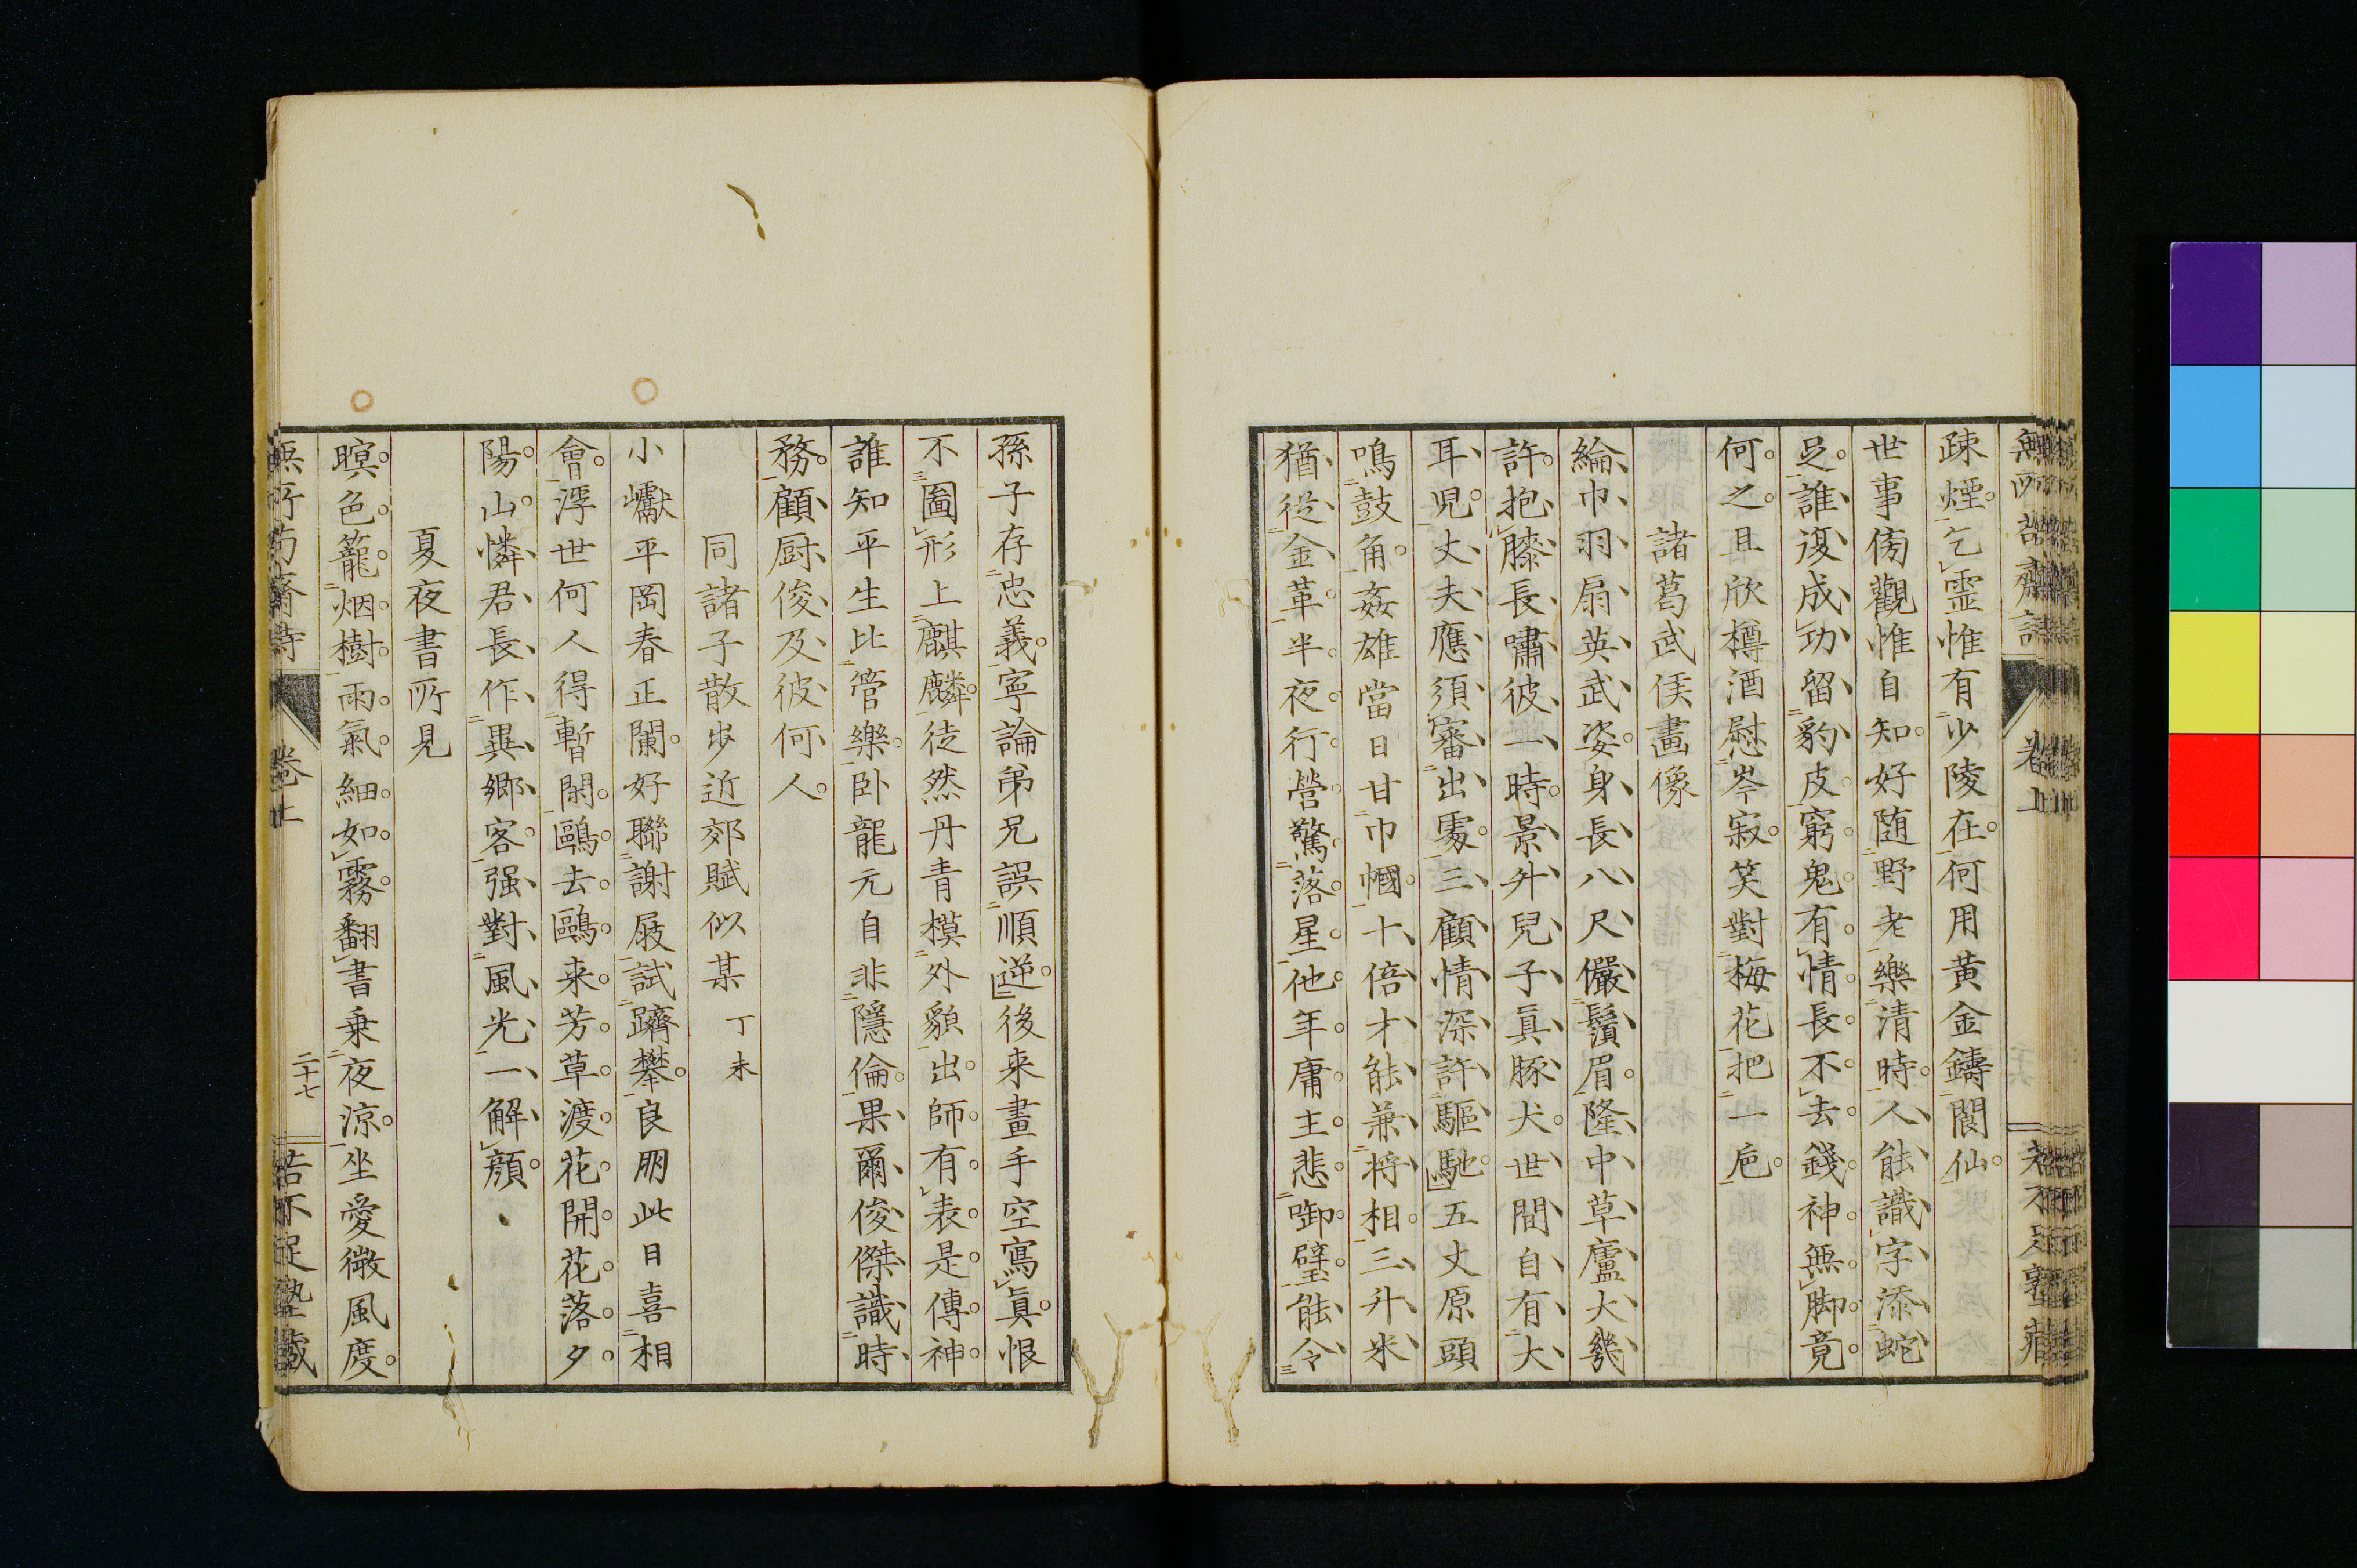 疎煙乞靈惟有少陵在何用黄金鑄閬仙
世事傍觀惟自知好随野老樂清時人能識字添蛇
足誰復成功留豹皮窮鬼有情長不去錢神無脚竟
何之且欣樽酒慰岑寂笑對梅花把一巵
諸葛武侯畫像
綸巾羽扇英武姿身長八尺儼鬚眉隆中草廬大幾
許抱膝長嘯彼一時景升兒子真豚犬世間自有大
耳児丈夫應須審出處三顧情深許驅馳五丈原頭
鳴鼓角姦雄當日甘巾幗十倍才能兼将相三升米
猶従金革半夜行營驚落星他年庸主悲啣璧能令
孫子存忠義寧論弟兄誤順逆後来畫手空寫真恨
不圖形上麒麟徒然丹青模外貌出師有表是傳神
誰知平生比管樂卧龍元自非隱倫果爾俊傑識時
務顧厨俊及彼何人
同諸子散步近郊賦似某 丁未
小巘平岡春正闌好聯謝屐試躋攀良朋此日喜相
會浮世何人得暫閑鷗去鷗来芳草渡花開花落夕
陽山憐君長作異郷客强對風光一解顔
夏夜書所見
暝色籠烟樹雨氣細如霧翻書乗夜涼坐愛微風度
卷上
二十七